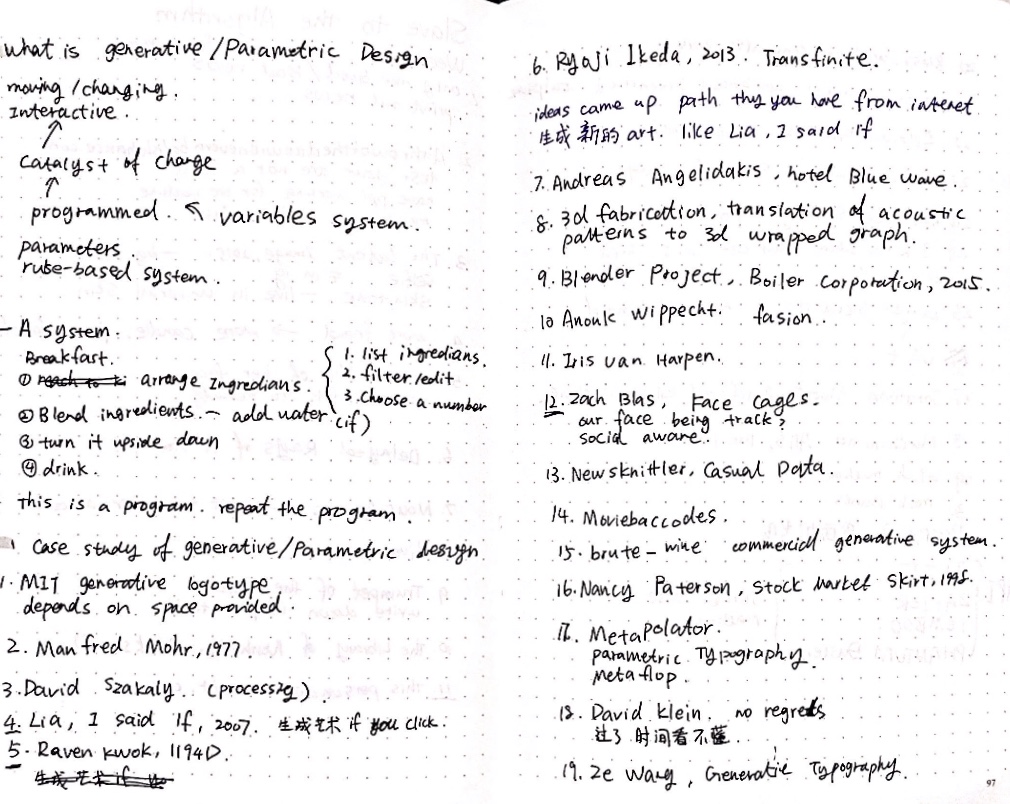 What is generative/Parametric Design
moving/changing.
Interactive.
catalyst of change
programmed. variables system.
parameters.
rule-based system.
- A system.
Breakfast.
① arrange Ingredians.
1. list ingredians.
2. filter/edit
3. choose a number
② Blend ingredients. - add water (if)
③ turn it upside down
④ drink.
This is a program. repeat the program.
Case study of generative/Parametric design
1. MIT generative logotype,
depends on space provided.
2. Manfred Mohr, 1977.
3. David Szakaly. (processig)
4. Lia, I said If, 2007. 生成艺术 if you click.
5. Raven Kwok, 1194D.
生成艺术 if yo
6. Ryoji Ikeda, 2013. Transfinite.
ideas came up path thy you have from interet
生成 新的 art. like Lia, I said If
7. Andreas Angelidakis, hotel Blue wave.
8. 3d fabricotion, translation of acoustic
patterns to 3d wrapped graph.
9. Blender Project, Boiler Corporation, 2015.
10 Anouk Wippecht. fasion.
11. Iris van Harpen.
12. Zach Blas, Face cages.
our face being track?
social aware.
13. Newsknittler, Casual Data.
14. Moviebaccodes.
15. brute-wine commercial generative system.
16. Nancy Paterson, Stock Market Skirt, 1998.
17. Metapolator.
parametric Typography.
metaflop.
18. David Klein. no regrets
过了 时间看不
19. Ze Wang, Generatie Typography.
97